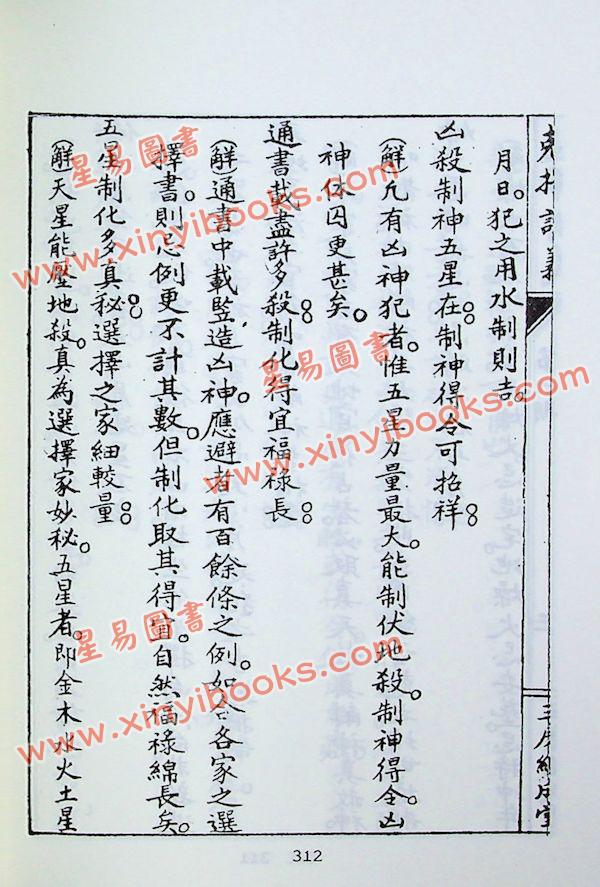 月日。犯之用水制則吉。
凶殺制神五星在。制神得令可招祥。
(解)凡有凶神犯者。惟五星力量最大。能制伏地殺。制神得令。凶
神休囚更甚矣。
通書載盡許多殺。制化得宜福祿長。
(解)通書中載豎造凶神。應避者有百餘條之例。如合各家之選
擇書。則忌例更不計其數。但制化取其得宜。自然福祿綿長矣。
五星制化多真秘。選擇之家細較量。
(解)天星能壓地殺。真為選擇家妙秘。五星者。即金木水火土星
312
星易圖書
www.xinyibooks.com
星易圖書
www.xinyibooks.com
星易圖書
www.xinyibooks.com
星易圖書
www.xinyibooks.com